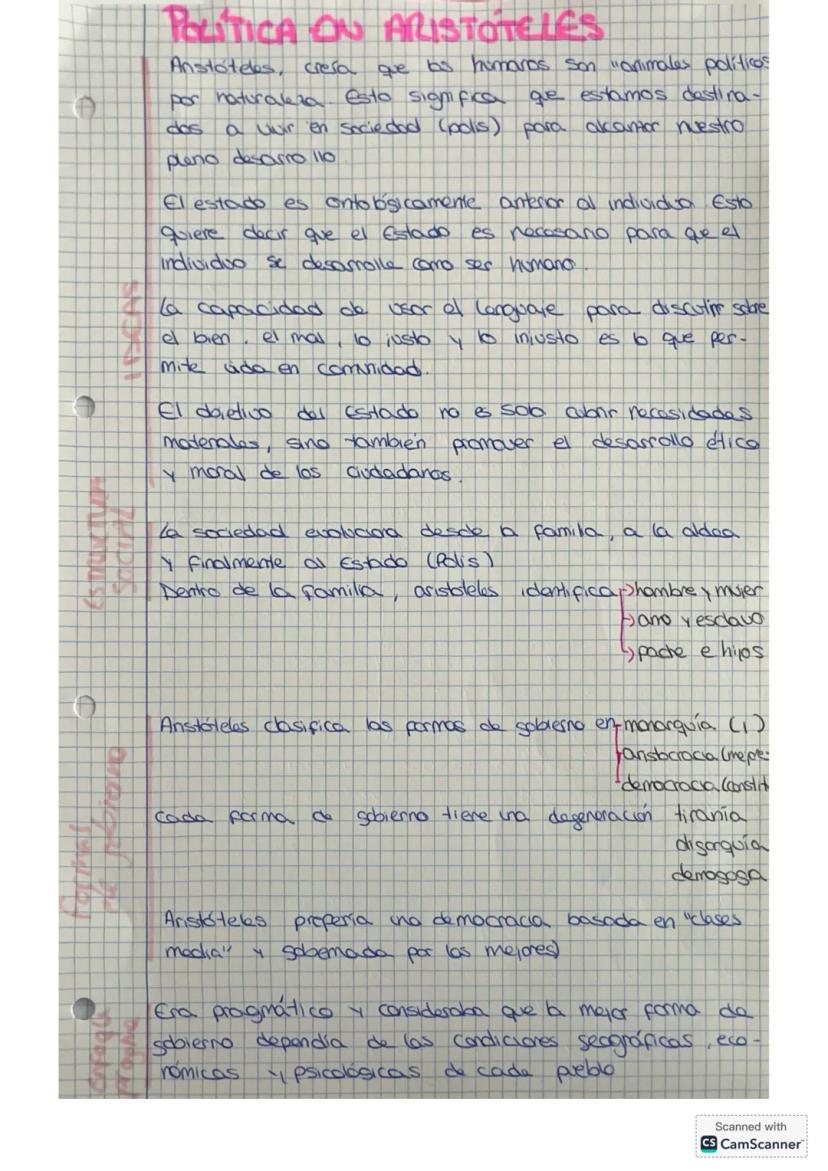 POLÍTICA EN ARISTÓTELES
Aristóteles, creía que los humanos son "animales políticos
por naturaleza. Esto significa que estamos destina-
dos a vivir en sociedad (polis) para alcanzar nuestro
pleno desarrollo
El estado es ontológicamente anterior al individuo Esto
quiere decir que el Estado es necesario para que el
individuo se desarrolle como ser humano.
IDEAS
La capacidad de usar el lenguaje para discutir sobre
el bien, el mal, lo justo y lo injusto es lo que per-
mite vida en comunidad.
El objetivo del Estado no es solo cubrir necesidades
materiales, sino también promover el desarrollo ético
y moral de los ciudadanos.
ESTRUCTURA
SOCIAL
La sociedad evoluciona desde la familia, a la aldea
y finalmente al Estado (Polis)
Dentro de la familia, aristoteles identifica hombre y mujer
amo y esclavo
padre e hijos
Formas
de gobierno
Aristóteles clasifica las formas de gobierno en monarquía (1)
aristocracia (mejore
democracia (constit
Cada forma de gobierno tiene una degeneración tiranía
oligarquía
demagoga
Aristóteles prefería una democracia basada en "clases
media" y gobernada por los mejores)
Enfoque
Era pragmático y consideraba que la mejor forma de
gobierno dependía de las condiciones geográficas, eco-
nómicas y psicológicas de cada pueblo
Scanned with
CS CamScanner